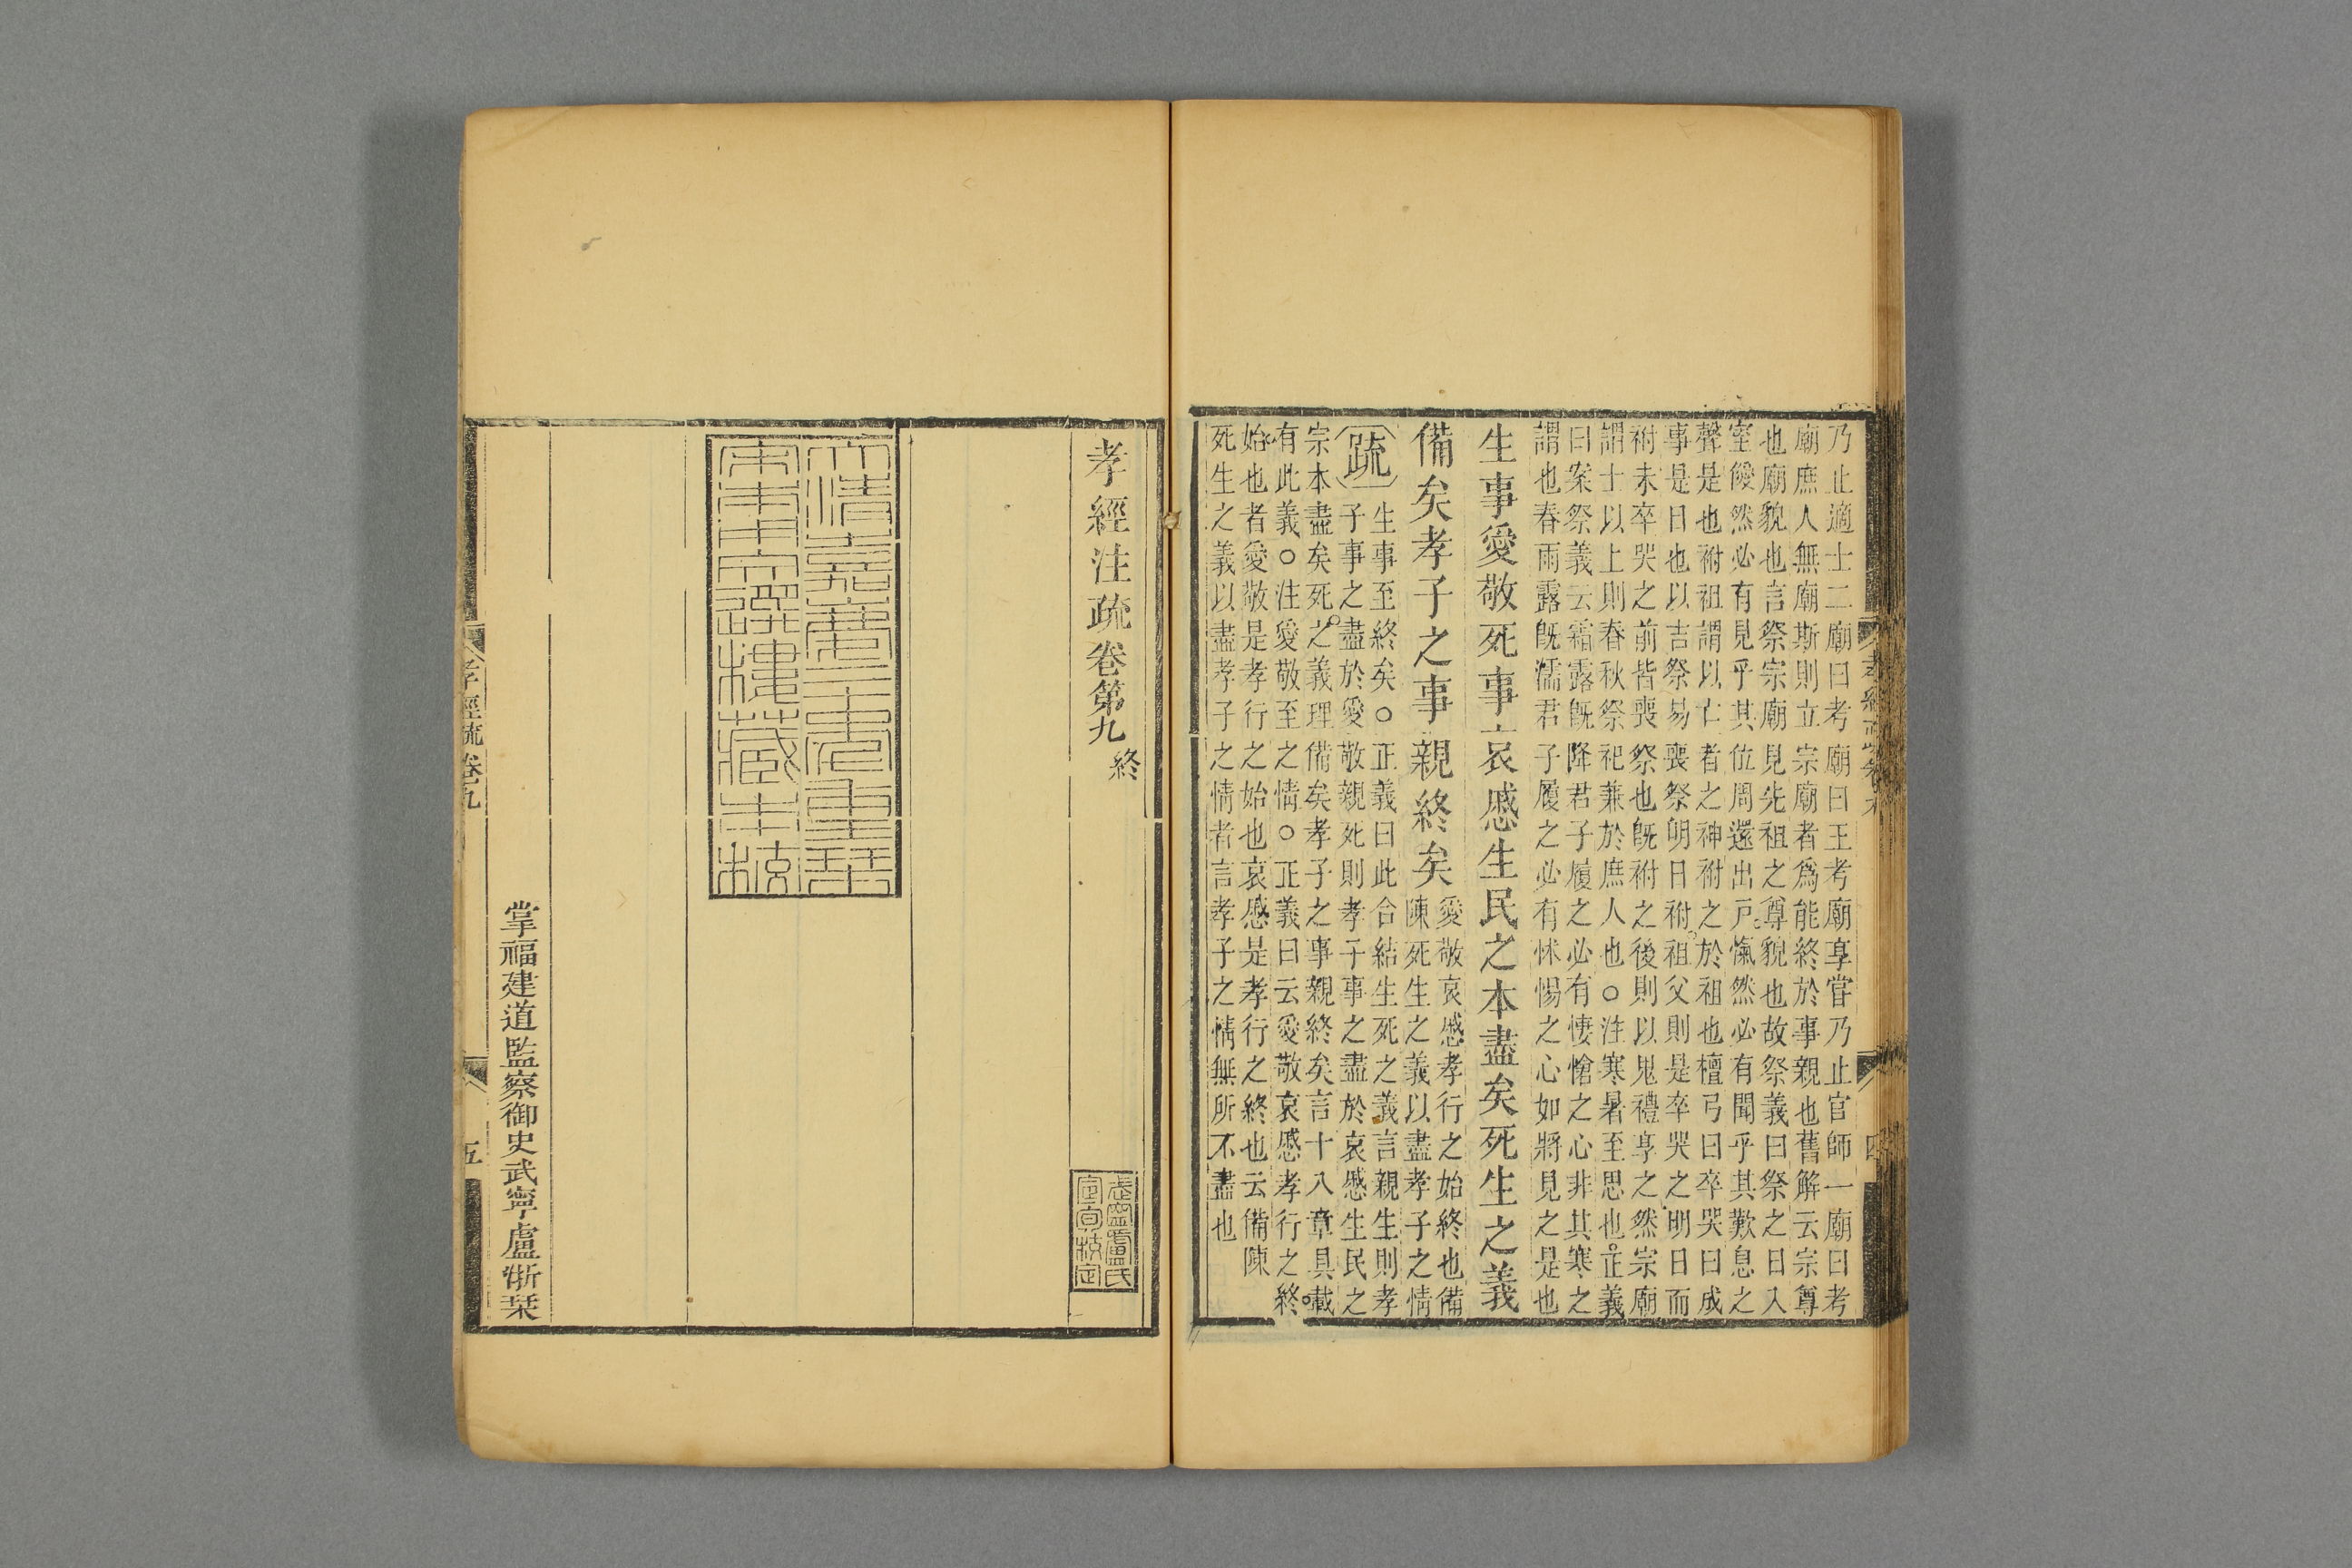 乃止適士二廟曰考廟曰王考廟享甞乃止官師一廟曰考
廟庶人無廟斯則立宗廟者爲能終於事親也舊解云宗尊
也廟貌也言祭宗廟見先祖之尊貌也故祭義曰祭之日入
室僾然必有見乎其位周還出戶愾然必有聞乎其歎息之
聲是也祔祖謂以亡者之神祔之於祖也檀弓曰卒哭曰成
事是日也以吉祭易喪祭明日祔祖父則是卒哭之明日而
祔未卒哭之前皆喪祭也旣祔之後則以鬼禮享之然宗廟
謂士以上則春秋祭祀兼於庶人也○注寒暑至思也正義
曰案祭義云霜露旣降君子履之必有悽愴之心非其寒之
謂也春雨露旣濡君子履之必有怵惕之心如將見之是也
生事愛敬死事哀慼生民之本盡矣死生之義
備矣孝子之事親終矣愛敬哀慼孝行之始終也備
陳死生之義以盡孝子之情
疏生事至終矣○正義曰此合結生死之義言親生則孝
子事之盡於愛敬親死則孝子事之盡於哀慼生民之
宗本盡矣死之義理備矣孝子之事親終矣言十八章具載
有此義○注愛敬至之情○正義曰云愛敬哀慼孝行之終
始也者愛敬是孝行之始也哀慼是孝行之終也云備陳
死生之義以盡孝子之情者言孝子之情無所不盡也
孝經注疏卷第九終
武寧盧氏
宣旬校定
大清嘉慶二十年重栞
宋本用文選樓藏本校
掌福建道監察御史武寧盧浙栞
孝經疏卷九
五